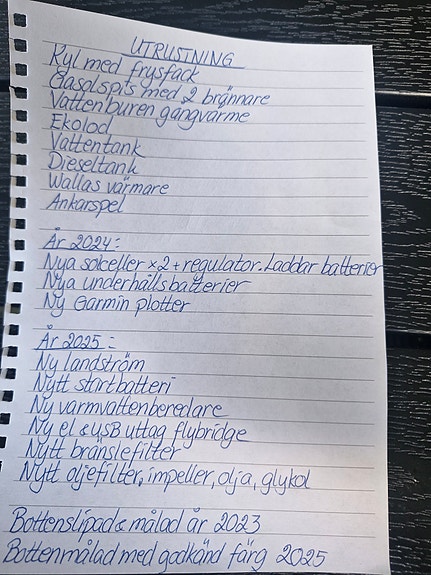 UTRUSTNING
Kyl med frysfack
Gasolspis med 2 brännare
Vattenburen gångvärme
Ekolod
Vattentank
Dieseltank
Wallas värmare
Ankarspel
År 2024:
Nya solceller x 2 + regulator. Laddar batterier
Nya underhållsbatterier
Ny Garmin plotter
År 2025:
Ny landström
Nytt startbatteri
Ny varmvattenberedare
Ny el & USB uttag flybridge
Nytt bränslefilter
Nytt oljefilter, impeller, olja, glykol
Bottenslipad & målad år 2023
Bottenmålad med godkänd färg 2025